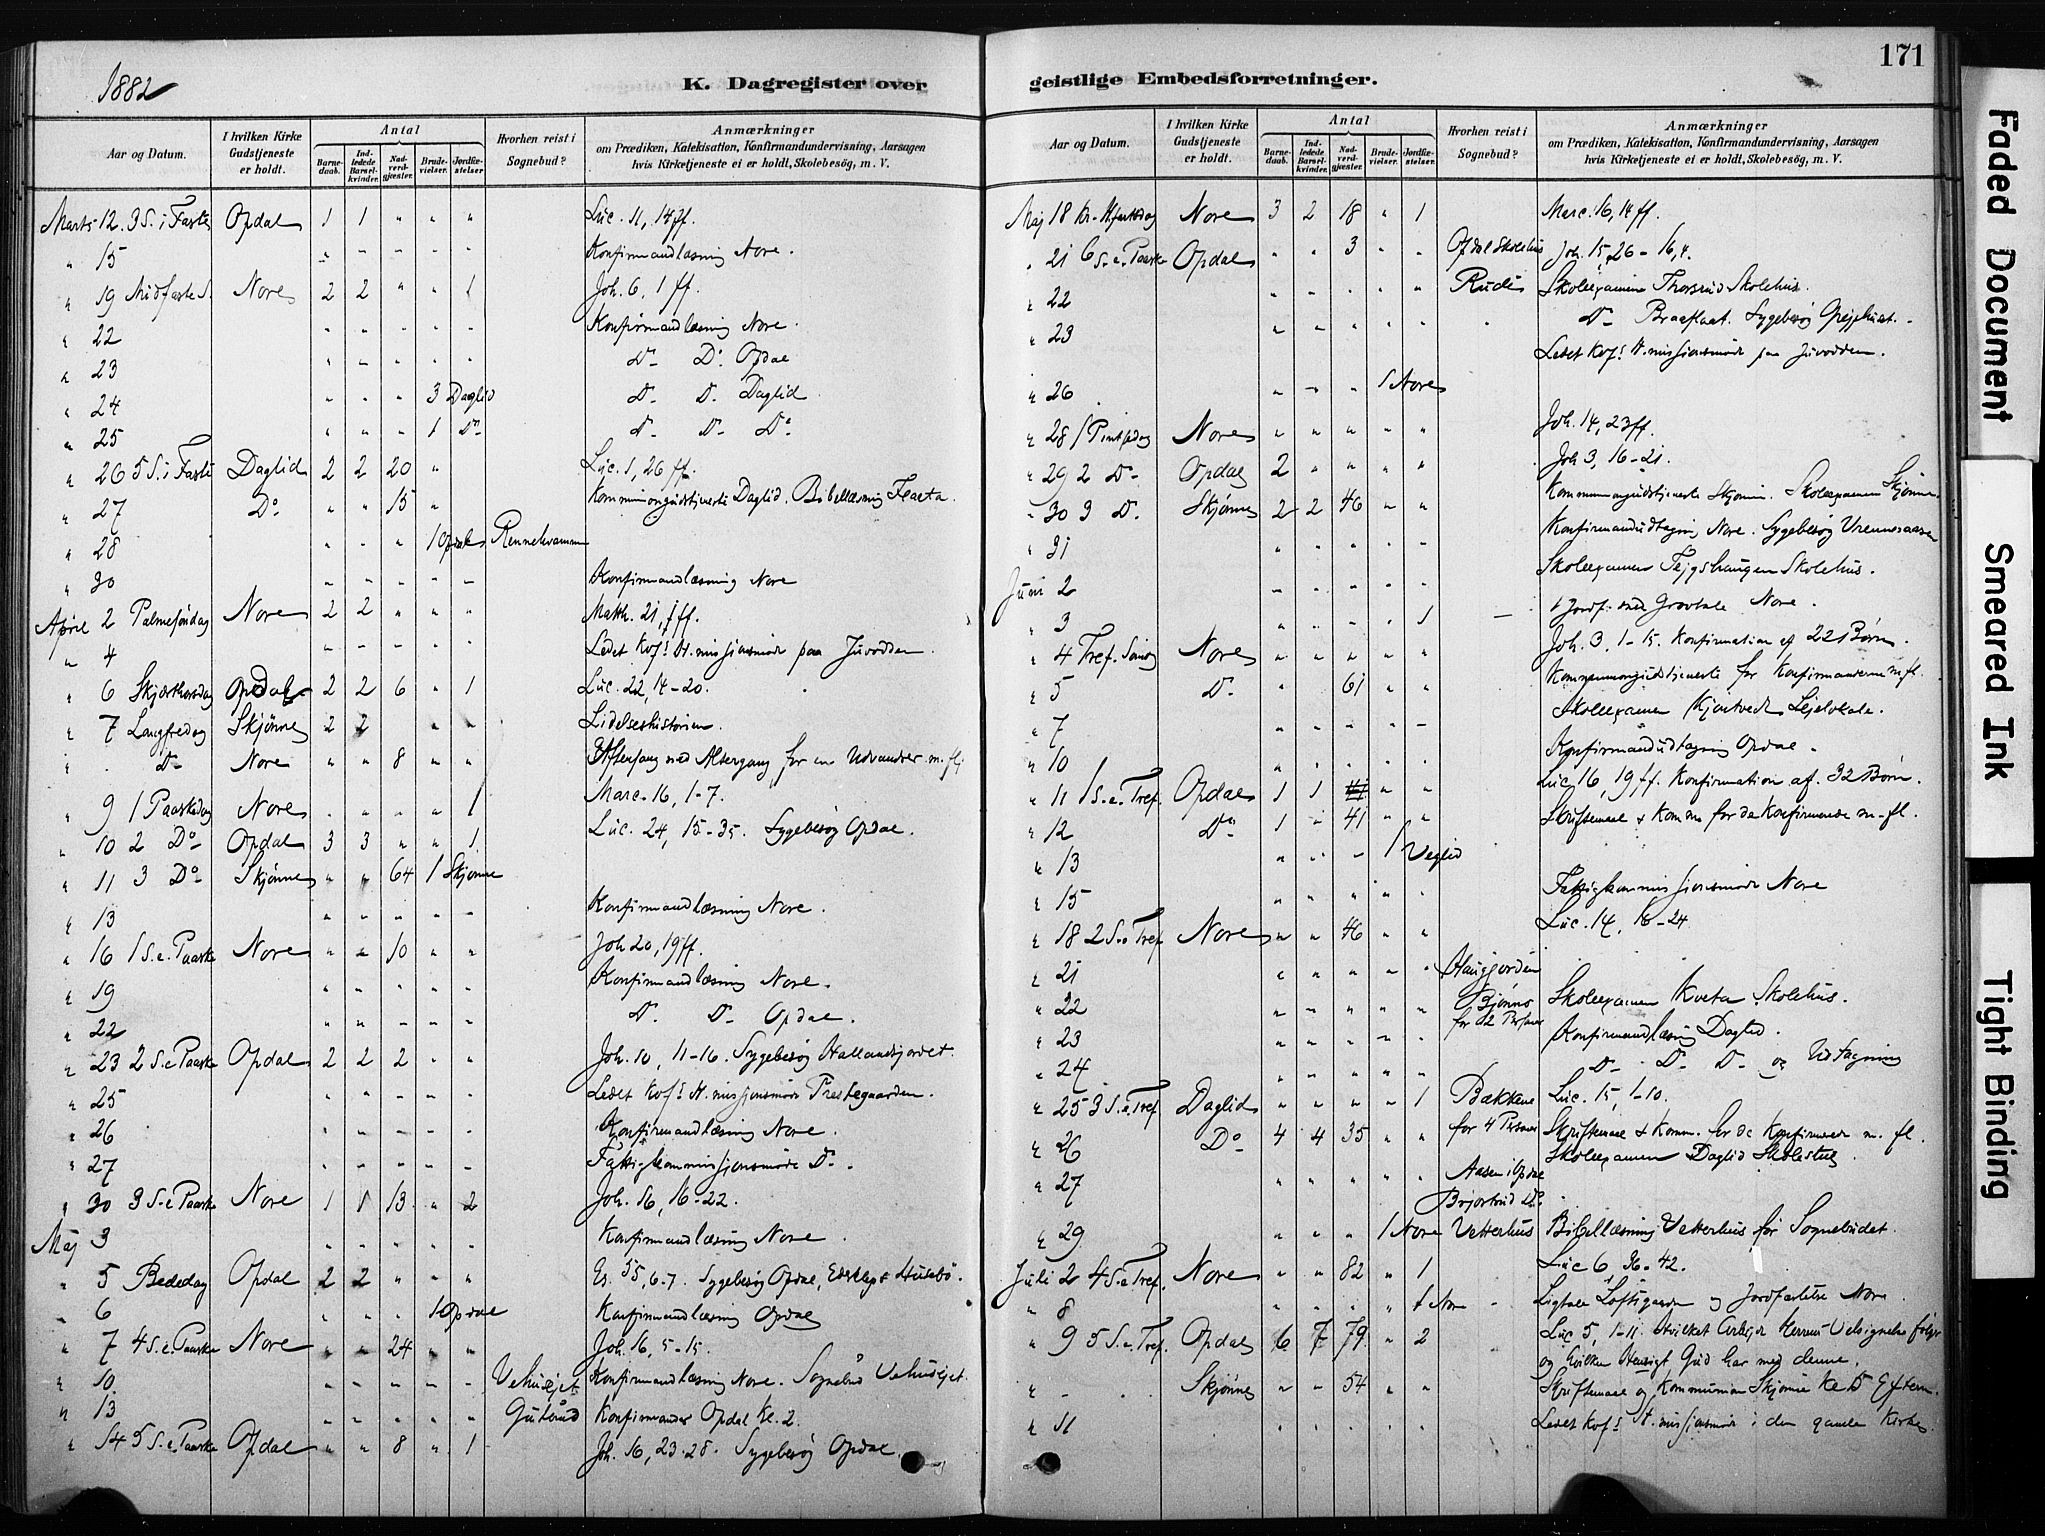 1882
K. Dagregister over
Aar og Datum. I hvilken Kirke Gudstjeneste er holdt. Antal Barnedaab. Indledede Barselkvinder. Nadverdgjæster. Brudevielser. Jordfæstelser Hvorhen reist i Sognebud? Anmærkninger om Prædiken, Katekisation, Konfirmandundervisning, Aarsagen hvis Kirketjeneste ei er holdt, Skolebesög, m. V.
Marts 12. 3 S. i Faste Opdal 1 1 " " " Luc. 11, 14 ff.
" 15 " " " " " Konfirmandlæsning Nore.
" 19 Midfaste S. Nore 2 2 " " 1 Joh. 6, 1 ff.
" 22 " " " " " Konfirmandlæsning Nore.
" 23 " " " " " Do Do Opdal
" 24 " " " 3 Daglid Do Do Daglid
" 25 " " " 1 Do Do Do Do
" 26 5 S. i Faste Daglid 2 2 20 " Luc. 1, 26 ff.
" 27 Do " " 15 " Kommuniongudstjeneste Daglid. Bibellæsning Flaata.
" 28 " " " 1 Opdal
" 30 " " " " " Konfirmandlæsning Nore
April 2 Palmesøndag Nore 2 2 " " " Matth. 21, 1 ff.
" 4 " " " " " Ledet Kofs St. missionsmøde paa Juvodden.
" 6 Skjærthorsdag Opdal 2 2 6 " 1 Luc. 22, 14-20.
" 7 Langfredag Skjønne 2 2 " " Lidelseshistorien.
" " Do Nore " " 8 " " Aftensang med Altergang for en Udvandrer m. fl.
" 9 1 Paaskedag Nore " " " " 1 Marc. 16, 1-7.
" 10 2 Do Opdal 3 3 " " 1. Luc. 24, 15-35. Sygebesøg Opdal.
" 11 3 Do Skjønne " " 64 1 Skjønne
" 13 " " " " " Konfirmandlæsning Nore.
" 16 1 S. e. Paaske Nore " " 10 " " Joh 20, 19 ff.
" 19 " " " " " Konfirmandlæsning Nore.
" 22 " " " " " Do Do Opdal.
" 23 2 S. e Paaske Opdal 2 2 2 " " Joh. 10, 11-16. Sygebesøg
" 25 " " " " " Ledet Kofs St. missionsmøde Prestegaarden.
" 26 " " " " " Konfirmandlæsning Nore.
" 27 " " " " " Fattigkommissionsmøde Do.
" 30 3 S. e Paaske Nore 1 1 13 " 2 Joh. 16, 16-22.
Maj 3 " " " " " Konfirmandlæsning Nore.
" 5 Bededag Opdal 2 2 " " " Es. 55, 6-7. Sygebesøg Opdal,
" 6 " " " 1 Opdal Konfirmandlæsning Opdal
" 7 4 S. e. Paaske Nore " " 24 " " Joh. 16, 5-15.
" 10. " " " " " Konfirmandlæsning Nore. Sognebud
" 13 " " " " " Konfirmander Opdal Kl. 2.
" 14 5 S. e. Paaske Opdal " " 8 " 1 Joh. 16, 23-28. Sygebesøg Opdal.
171
geistlige Embedsforretninger.
Aar og Datum. I hvilken Kirke Gudstjeneste er holdt. Antal Barnedaab. Indledede Barselkvinder. Nadverdgjæster. Brudevielser. Jordfæstelser. Hvorhen reist i Sognebud? Anmærkninger om Prædiken, Katekisation, Konfirmandundervisning, Aarsagen hvis Kirketjeneste ei er holdt, Skolebesög, m. V.
Maj 18 Kr. Himfartsdag Nore 3 2 18 " 1 Marc. 16, 14 ff.
" 21 6 S. e. Paaske Opdal " " 3 " " Opdal Skolehus Joh. 15, 26 - 16, 4.
" 22 " " " " " Rudi Skoleexamen Thorsrud Skolehus.
" 23 " " " " " Do Sygebesøg
Ledet Kofs St. missionsmøde paa Juvodden.
" 26 " " " 1 Nore
" 28 1 Pintsdag Nore " " " " " Joh. 14, 23 ff.
" 29 2 Do Opdal 2 " " " " Joh 3, 16-21.
" 30 3 D. Skjønne 2 2 46 " " Kommuniongudstjeneste Skjønne. Skoleexamen Skjønne.
" 31 " " " " " Konfirmandudtagning Nore. Sygebesøg
Juni 2 " " " " " Skoleexamen Skolehus.
" 3 " " " " 1 1 Jordf. med Gravtale Nore.
" 4 Tref. Sønd Nore " " " " " Joh. 3, 1-15. Konfirmation af 22 Børn.
" 5 Do " 61 " " Kommuniongudstjeneste for Konfirmanderne m fl.
" 7 " " " " " Skoleexamen
" 10 " " " " " Konfirmandudtagning Opdal.
" 11 1 S. e. Tref. Opdal 1 1 " " Luc. 16, 19 ff. Konfirmation af 32 Børn.
" 12 Do 1 " 41 " " Skriftemaal & Komm. for de Konfirmerede m. fl.
" 13 " " " 1 Veglid
" 15 " " " " Fattigkommissionsmøde Nore
" 18 2 S. e Tref Nore " " 46 " " Luc. 14, 16-24
" 21 " " " " "
" 22 " " " " " Bjønnes for 2 Personer Skoleexamen Kveta Skolehus.
" 23 " " " " " Konfirmandlæsning Daglid.
" 24 " " " " " Do Do Do og Udtagning
" 25 3 S. e Tref. Daglid " " " " 1 Bækkene for 4 Personer Luc. 15, 1-10.
" 26 Do 4 4 35 " " Skriftemaal & Komm. for de Konfirmerede m. fl.
Skoleexamen Daglid Skolestue
" 27 " " " " " Aasen i Opdal
" 29 " " " 1 Nore Vetterhus Bibellæsning Vetterhus for Sognebudet.
Juli 2 4 S. e Tref. Nore " " 82 " 1 Luc 6 36-42.
" 8 " " " " 1 Nore Ligtale og Jordfæstelse Nore
" 9 5 S. e. Tref. Opdal 6 7 79. " 2 Luc 5, 1-11. Hvilket Arbejde Herrens Velsignelse følger
og hvilken Hensigt Gud har med denne.
" - Skjønne " " 54 " " Skriftemaal og Kommunion Skjønne Kl 5 Efterm.
" 11 Ledet Kofs St. missionsmøde i den gamle Kirke
Faded Document
Smeared Ink
Tight Binding